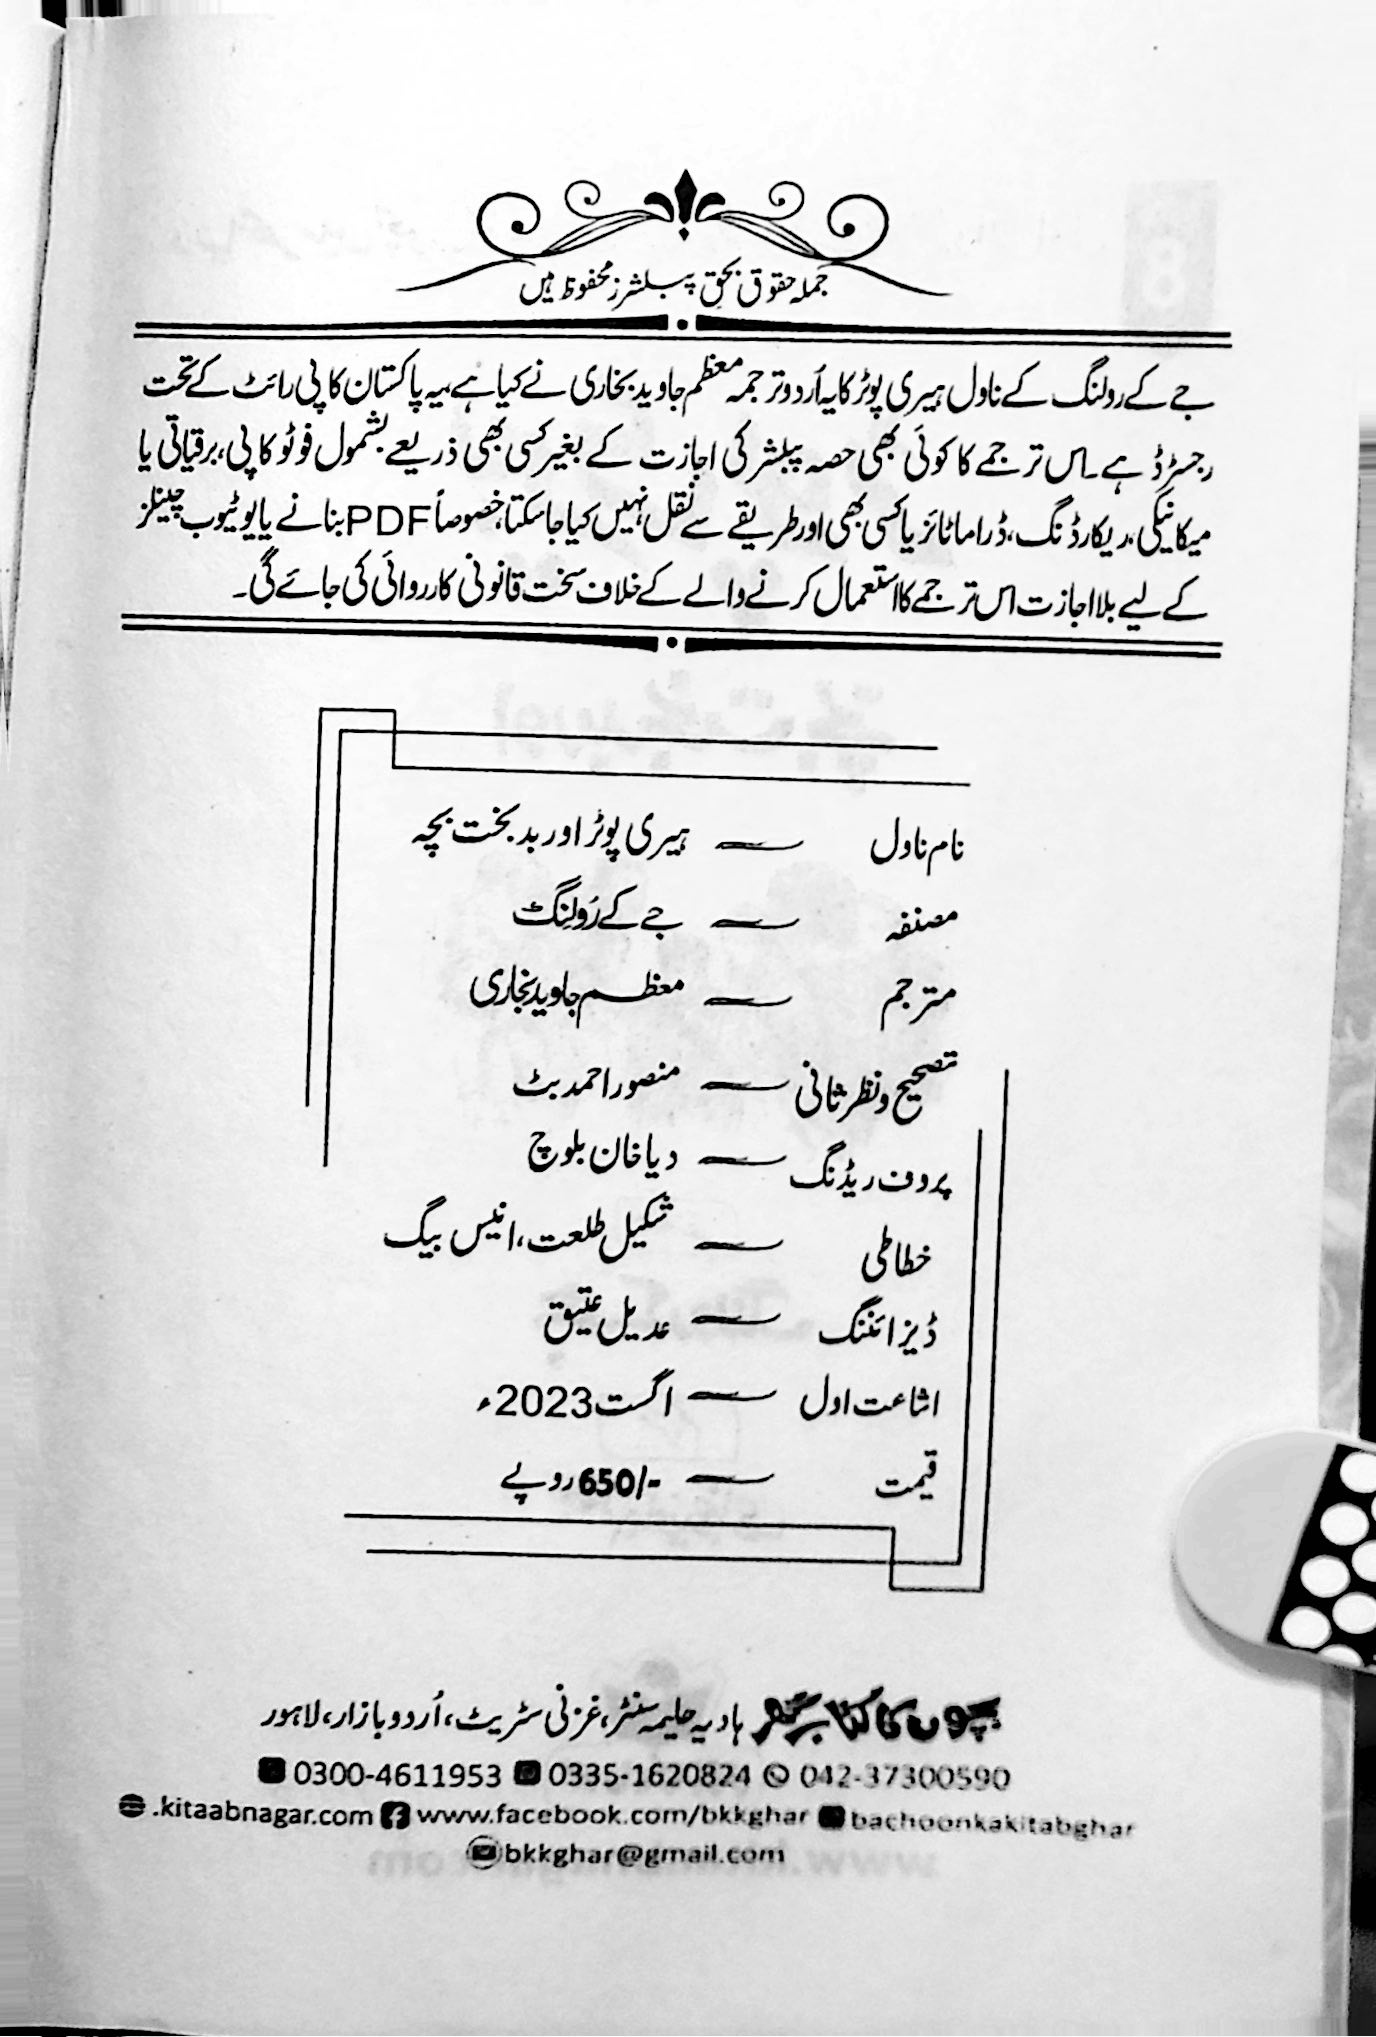 جملہ حقوق بحقِ پبلشرز محفوظ ہیں
جے کے رولنگ کے ناول ہیری پوٹر کا یہ اُردو ترجمہ معظم جاوید بخاری نے کیا ہے، یہ پاکستان کاپی رائٹ کے تحت
رجسٹرڈ ہے۔ اس ترجمے کا کوئی بھی حصہ پبلشر کی اجازت کے بغیر کسی بھی ذریعے بشمول فوٹو کاپی، برقیاتی یا
میکانیکی، ریکارڈنگ، ڈراماٹائز یا کسی بھی اور طریقے سے نقل نہیں کیا جاسکتا، خصوصاً PDF بنانے یا یوٹیوب چینلز
کے لیے بلا اجازت اس ترجمے کا استعمال کرنے والے کے خلاف سخت قانونی کارروائی کی جائے گی۔
نام ناول — ہیری پوٹر اور بدبخت بچہ
مصنفہ — جے کے رَولِنگ
مترجم — معظم جاوید بخاری
تصحیح و نظر ثانی — منصور احمد بٹ
پروف ریڈنگ — دیا خان بلوچ
خطاطی — شکیل طلعت، انیس بیگ
ڈیزائننگ — عدیل عتیق
اشاعت اول — اگست 2023ء
قیمت — 650/- روپے
بچوں کا کتاب گھر ہادیہ حلیمہ سنٹر، غزنی سٹریٹ، اُردو بازار، لاہور
0300-4611953 0335-1620824 042-37300590
.kitaabnagar.com www.facebook.com/bkkghar bachoonkakitabghar
bkkghar@gmail.com